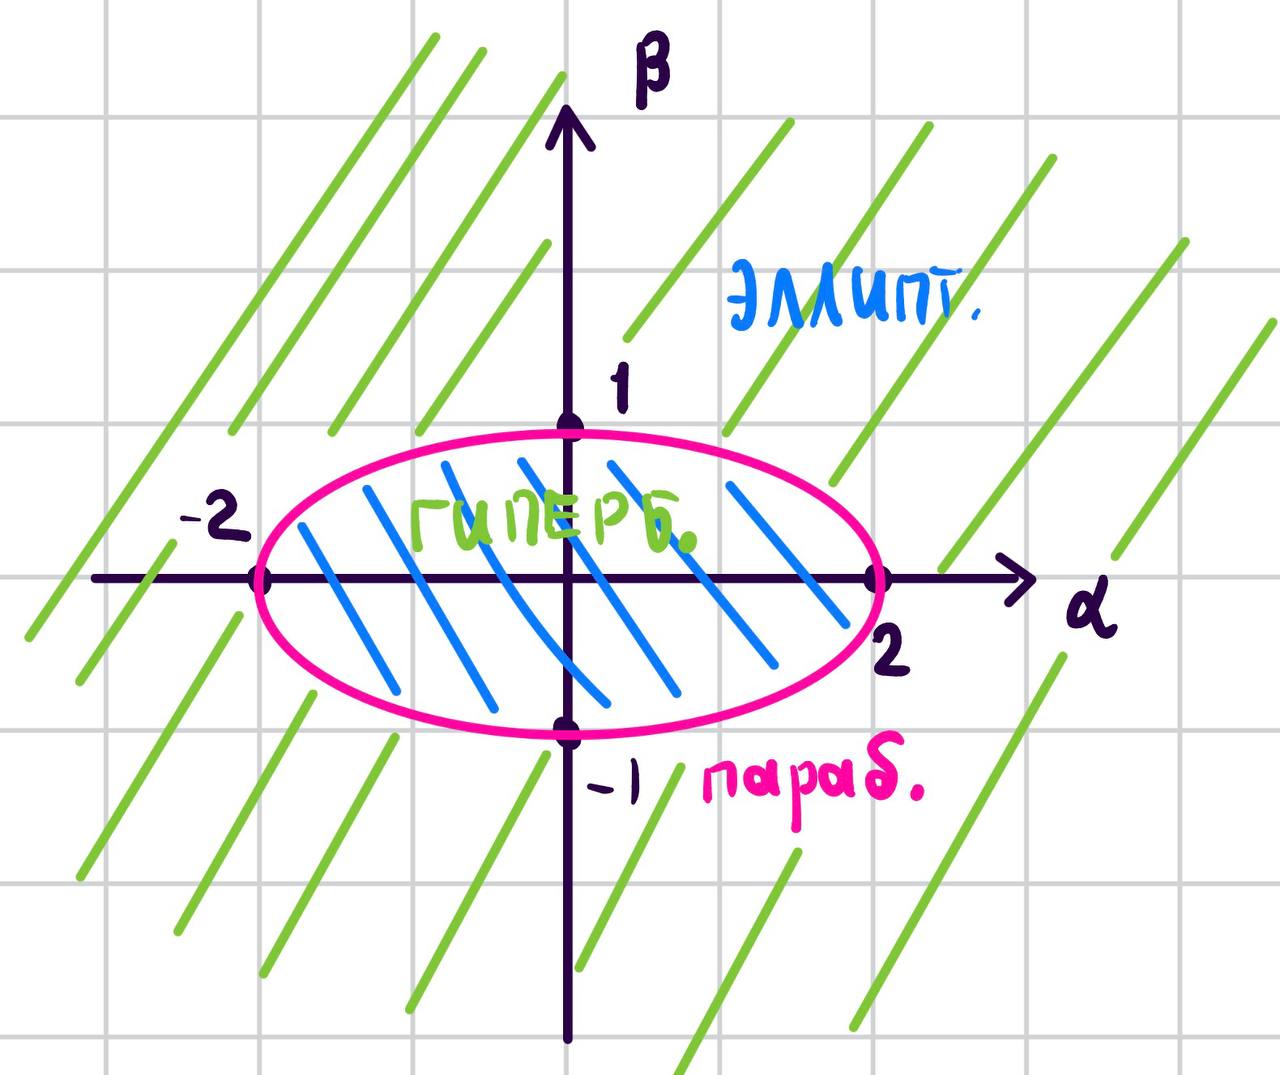 β
эллипт.
1
-2
гиперб.
α
2
-1
параб.